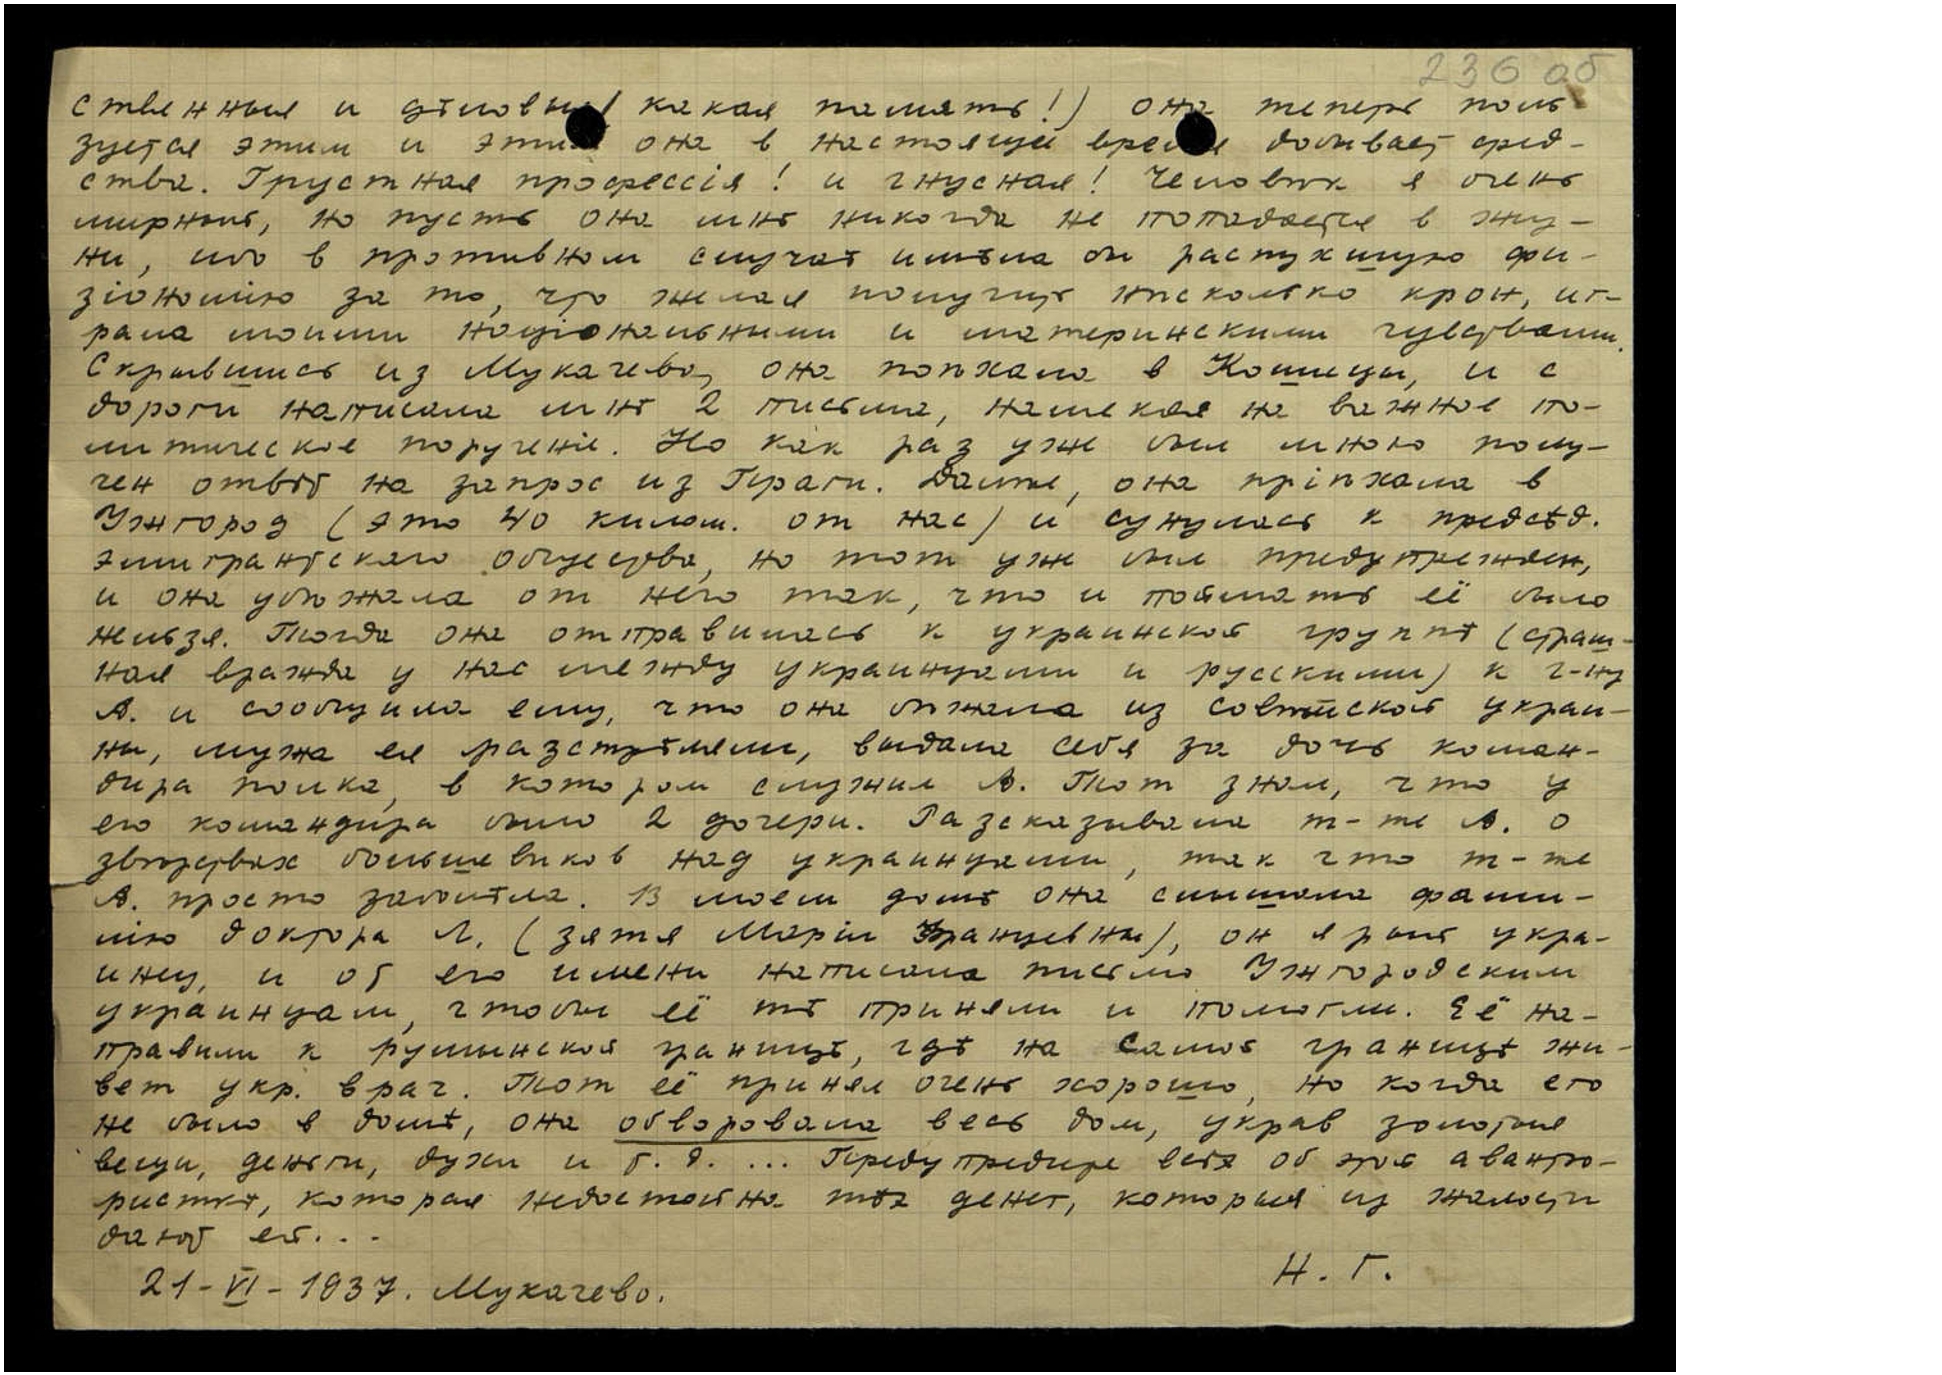 236 об
ственныя и дѣловыя (какая память!) она теперь поль
зуется этим и этим она в настоящее время добывает сред-
ства. Грустная профессія! и гнусная! Человѣк я очень
мирный, но пусть она мнѣ никогда не попадается в жиз-
ни, ибо в противном случаѣ имѣла бы распухшую фи-
зіономію за то, что желая получить нѣсколько крон, иг-
рала моими національными и материнскими чувствами.
Скрывшись из Мукачево, она поѣхала в Кошицы, и с
дороги написала мнѣ 2 письма, намекая на важное по-
литическое порученіе. Но как раз уже был мною полу-
чен отвѣт на запрос из Праги. Далѣе, она пріѣхала в
Ужгород (это 40 килом. от нас) и сунулась к предсѣд.
эмигрантскаго общества, но тот уже был предупрежден,
и она убѣжала от него так, что и поймать её было
нельзя. Тогда она отправилась к украинской группѣ (страш-
ная вражда у нас между украинцами и русскими) к г-ну
А. и сообщила ему, что она бѣжала из совѣтской украи-
ны, мужа ея разстрѣляли, выдала себя за дочь коман-
дира полка, в котором служил А. Тот знал, что у
его командира было 2 дочери. Разсказывала m-me А. о
звѣрствах большевиков над украинцами, так что m-me
А. просто заболѣла. В моем домѣ она слышала фами-
лію доктора Л. (зятя Маріи Францевны), он ярый укра-
инец, и от его имени написала письмо Ужгородским
украинцам, чтобы её тѣ приняли и помогли. Её на-
правили к румынской границѣ, гдѣ на самой границѣ жи-
вет укр. врач. Тот её принял очень хорошо, но когда его
не было в домѣ, она обворовала весь дом, украв золотые
вещи, деньги, духи и т. д. ... Предупредите всѣх об этой авантю-
ристкѣ, которая недостойна тѣх денег, которыя из жалости
дают ей...
Н. Г.
21-VI-1937. Мукачево.